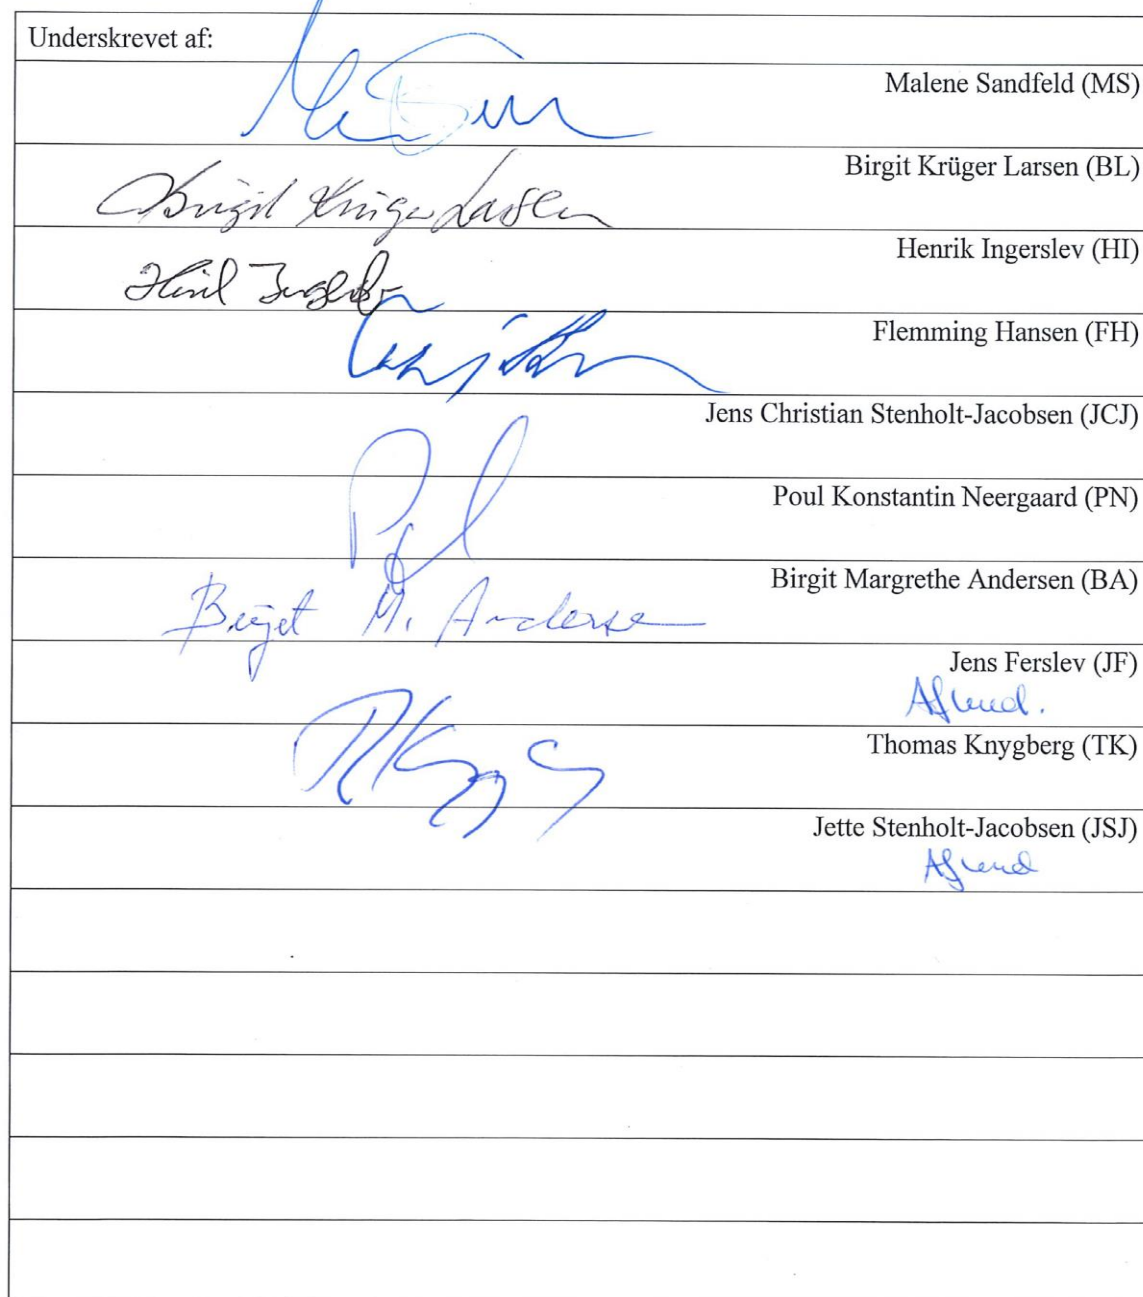 Underskrevet af:
Malene Sandfeld (MS)
Birgit Krüger Larsen (BL)
Birgit Krüger Larsen
Henrik Ingerslev (HI)
Flemming Hansen (FH)
Jens Christian Stenholt-Jacobsen (JCJ)
Poul Konstantin Neergaard (PN)
Birgit Margrethe Andersen (BA)
Birgit M. Andersen
Jens Ferslev (JF)
Afbud.
Thomas Knygberg (TK)
Jette Stenholt-Jacobsen (JSJ)
Afbud